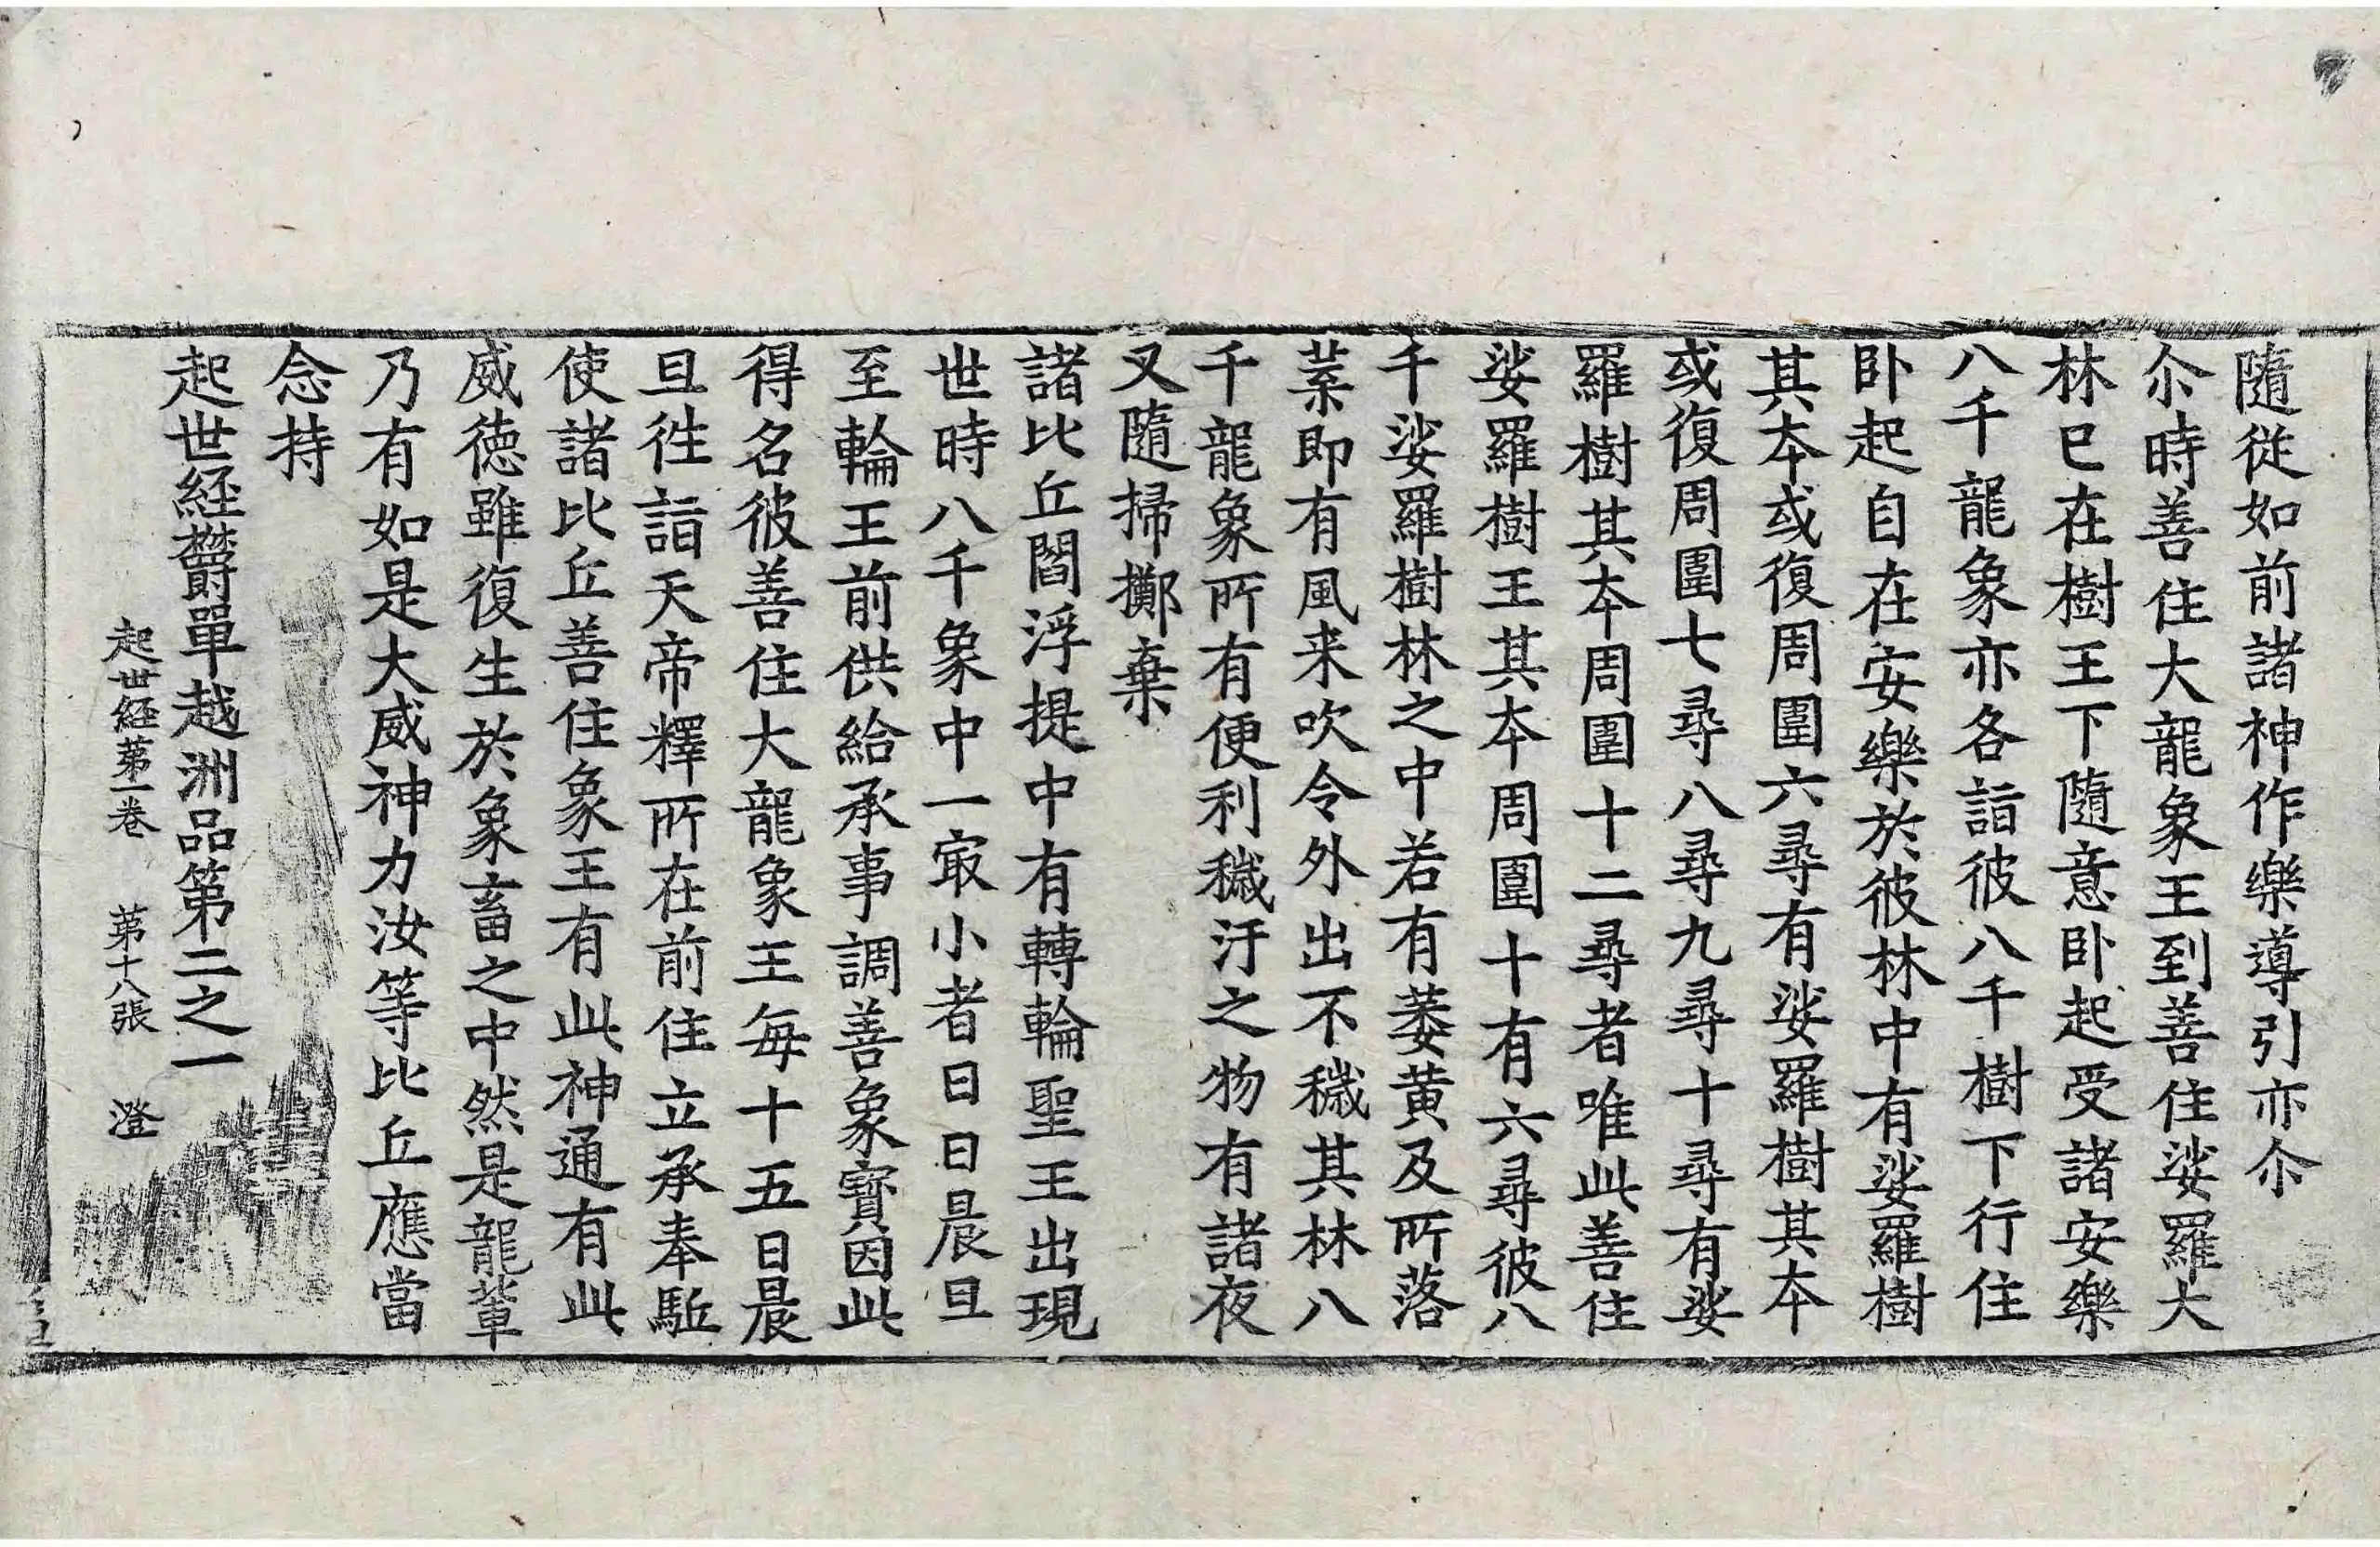 隨從如前諸神作樂導引亦尒
尒時善住大龍象王到善住娑羅大
林已在樹王下隨意卧起受諸安樂
八千龍象亦各詣彼八千樹下行住
卧起自在安樂於彼林中有娑羅樹
其夲或復周圍六尋有娑羅樹其夲
或復周圍七尋八尋九尋十尋有娑
羅樹其夲周圍十二尋者唯此善住
娑羅樹王其夲周圍十有六尋彼八
千娑羅樹林之中若有萎黄及所落
葉即有風来吹令外出不穢其林八
千龍象所有便利穢汙之物有諸夜
叉隨掃擲棄
諸比丘閻浮提中有轉輪聖王出現
世時八千象中一㝡小者日日晨旦
至輪王前供給承事調善象寳因此
得名彼善住大龍象王每十五日晨
旦徃詣天帝釋所在前住立承奉駈
使諸比丘善住象王有此神通有此
威徳雖復生於象畜之中然是龍軰
乃有如是大威神力汝等比丘應當
念持
起世経欝單越洲品第二之一
起世経苐一卷 苐十八張 澄